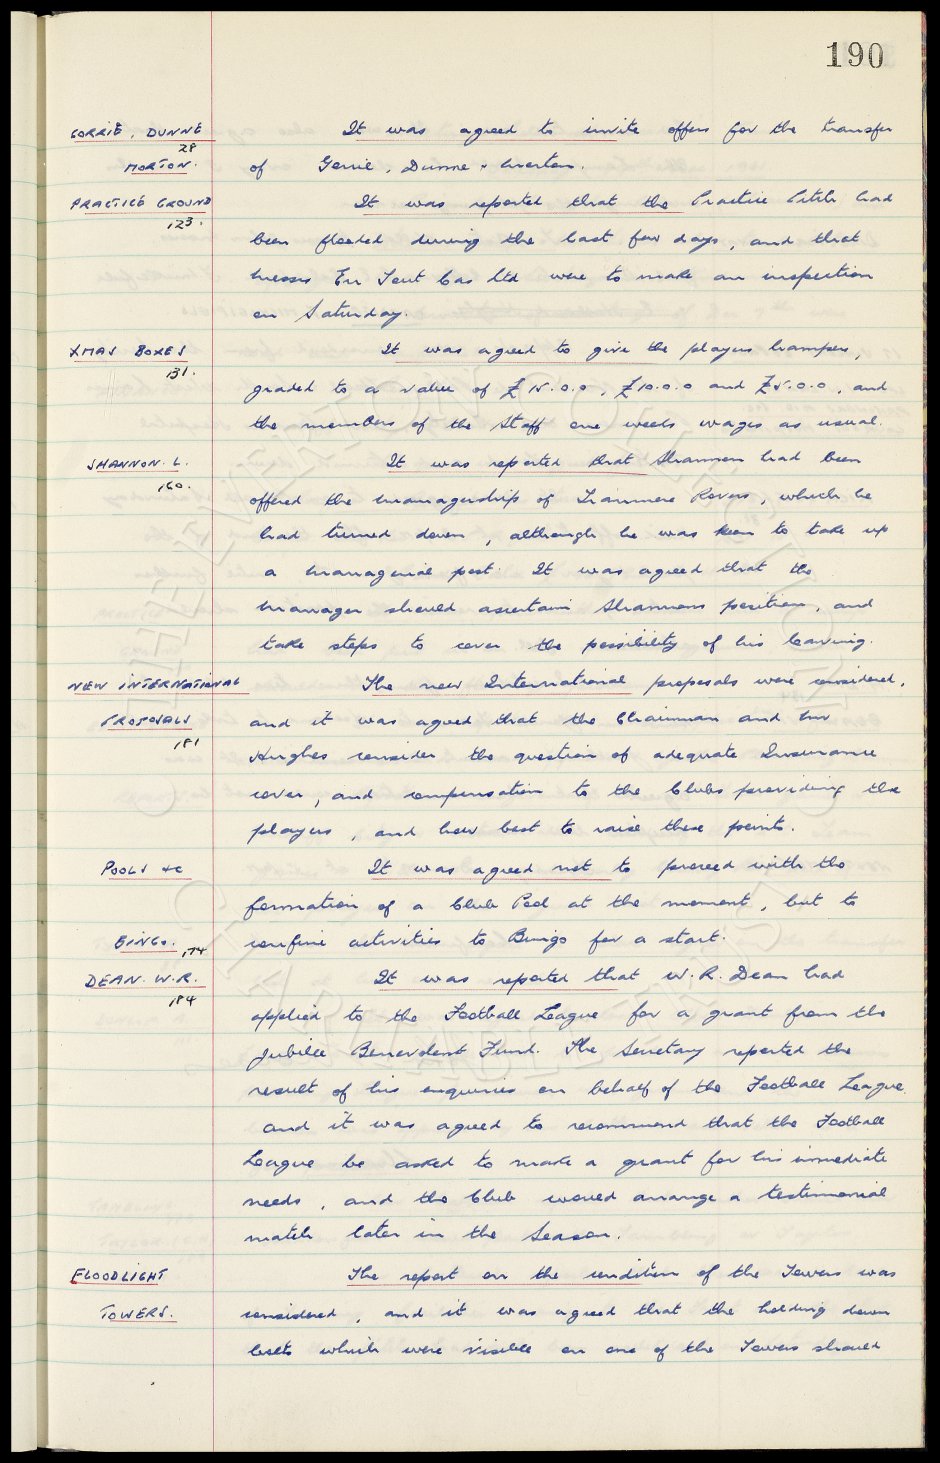 190
GORRIE, DUNNE It was agreed to invite offers for the transfer
28
MORTON. of Gorrie, Dunne & Morton.
PRACTICE GROUND It was reported that the Practice Pitch had
123.
been flooded during the last few days, and that
Messrs En Tout Cas Ltd were to make an inspection
on Saturday.
XMAS BOXES It was agreed to give the players hampers,
131.
graded to a value of £15.0.0, £10.0.0 and £5.0.0, and
the members of the Staff one weeks wages as usual.
SHANNON. L. It was reported that Shannon had been
160.
offered the managership of Tranmere Rovers, which he
had turned down, although he was keen to take up
a managerial post. It was agreed that the
Manager should ascertain Shannons position, and
take steps to cover the possibility of his leaving.
NEW INTERNATIONAL The new International proposals were considered,
PROPOSALS and it was agreed that the Chairman and Mr
181
Hughes consider the question of adequate Insurance
cover, and compensation to the Clubs providing the
players, and how best to raise these points.
POOLS &c It was agreed not to proceed with the
formation of a Club Pool at the moment, but to
BINGO. 174 confine activities to Bingo for a start.
DEAN. W.R. It was reported that W.R. Dean had
184
applied to the Football League for a grant from the
Jubilee Benevolent Fund. The Secretary reported the
result of his enquiries on behalf of the Football League
and it was agreed to recommend that the Football
League be asked to make a grant for his immediate
needs, and the Club would arrange a testimonial
match later in the Season.
FLOODLIGHT The report on the condition of the Towers was
TOWERS. considered, and it was agreed that the holding down
bolts which were visible on one of the Towers should